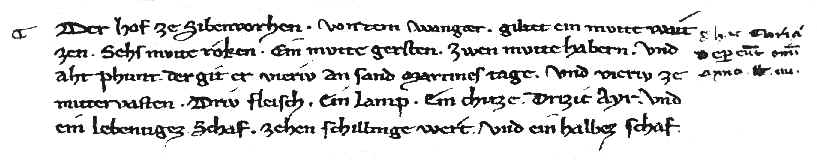 Der hof ze Sibenvorhen. Von dem wanger. giltet ein mutte wait
zen. Sehs mutte roken. Ein mutte gersten. Zwen mutte habern. Und
aht phunt. der git er vieriv an sand Martines tage. Und vieriv ze
mittervasten. Driv fleisch. Ein lamp. Ein chitze. Drizic Ayr. Und
ein lebentigez Schaf. zehen schillinge wert. Und ein halbez schaf.